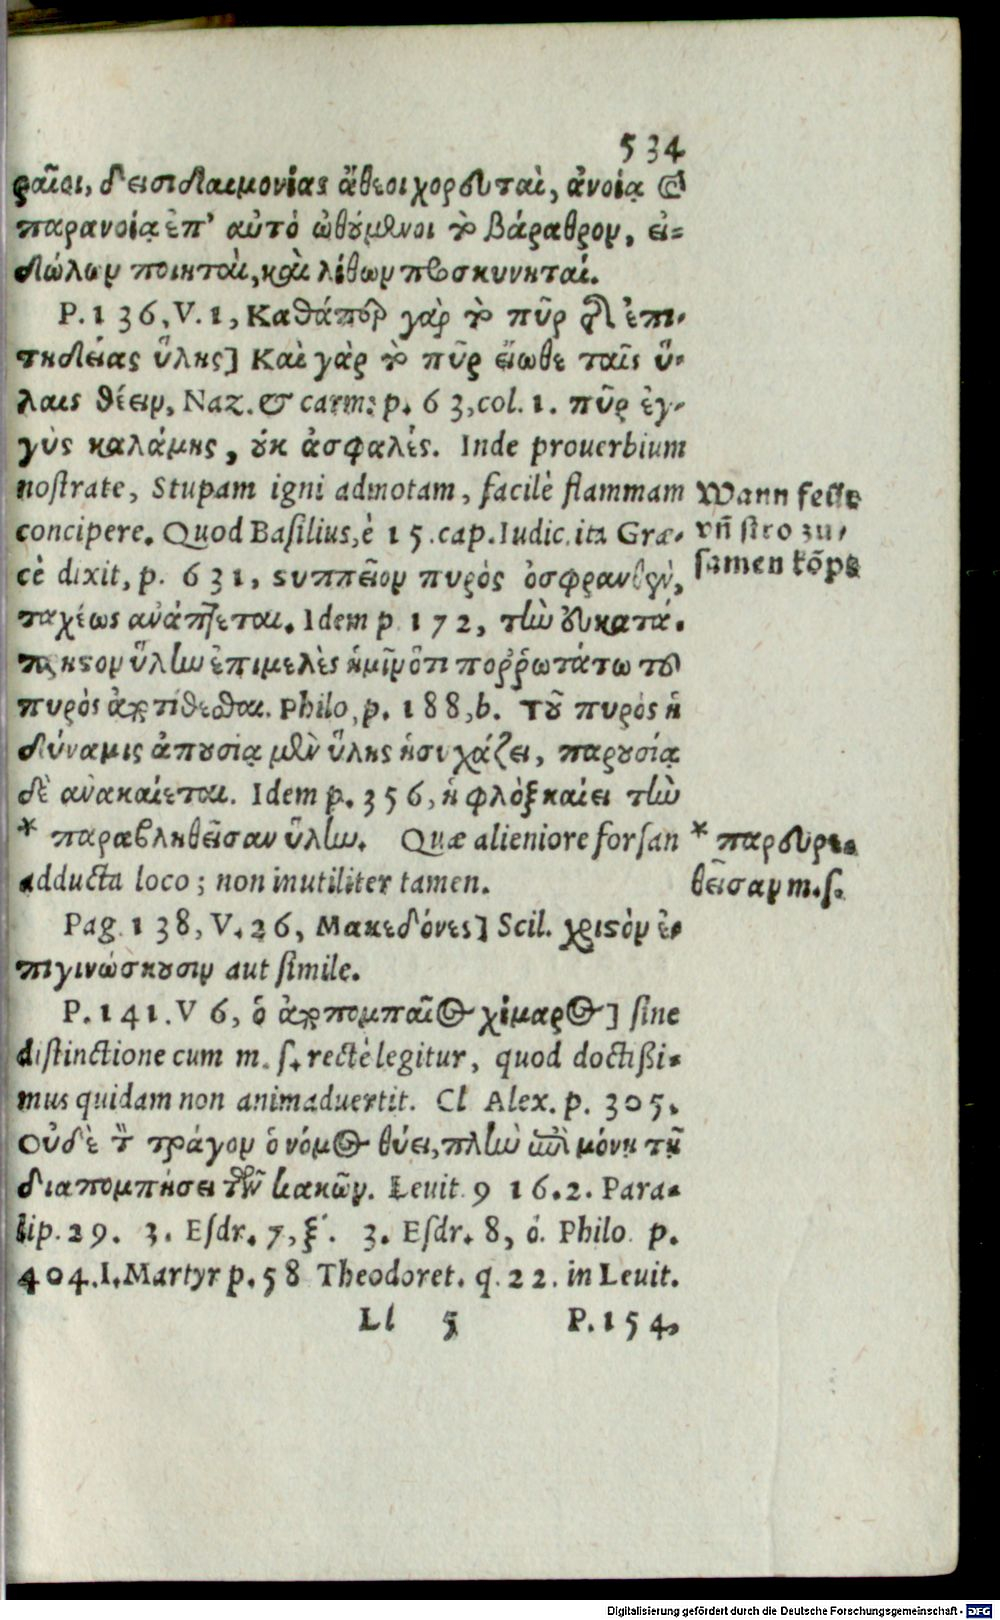 534
ϛαῖοι, δεισιδαιμονίας ἄθεοι χορευταὶ, ἀνοίᾳ &
παρανοίᾳ ἐπ' αὐτὸ ὠθούμενοι τὸ βάραθρον, εἰ-
δώλων ποιηταὶ, καὶ λίθων προσκυνηταί.
P. 136, V. 1, Καθάπερ γὰρ τὸ πῦρ ἐπι-
τηδείας ὕλης] Καὶ γὰρ τὸ πῦρ εἴωθε ταῖς ὕ-
λαις θέειν, Naz. & carm: p. 63, col. 1. πῦρ ἐγ-
γὺς καλάμης, οὐκ ἀσφαλές. Inde prouerbium
nostrate, Stupam igni admotam, facilè flammam
concipere. Quod Basilius, è 15. cap. Iudic. ita Græ-
cè dixit, p. 631, ϛυππεῖον πυρὸς ὀσφρανθὲν,
ταχέως ἀνάπτεται. Idem p 172, τὴν εὐκατά-
πρηϛον ὕλην ἐπιμελὲς ἡμῖν ὅτι ποῤῥωτάτω τοῦ
πυρὸς ἀποτίθεσθαι. Philo, p. 188, b. Τοῦ πυρὸς ἡ
δύναμις ἀπουσίᾳ μὲν ὕλης ἡσυχάζει, παρουσίᾳ
δὲ ἀνακαίεται. Idem p. 356, ἡ φλὸξ καίει τὴν
* παραβληθεῖσαν ὕλην. Quæ alieniore forsan
adducta loco; non inutiliter tamen.
Pag. 138, V. 26, Μακεδόνες] Scil. χριϛὸν ἐ-
πιγινώσκουσιν aut simile.
P. 141. V 6, ὁ ἀποπομπαῖος χίμαρος] sine
distinctione cum m. s. rectè legitur, quod doctißi-
mus quidam non animaduertit. Cl Alex. p. 305.
Οὐδὲ τὸν τράγον ὁ νόμος θύει, πλὴν ἐπὶ μόνῃ τῇ
διαπομπήσει τῶν κακῶν. Leuit. 9 16. 2. Para-
lip. 29. 3. Esdr. 7, ξ. 3. Esdr. 8, ό. Philo p.
404. I. Martyr p. 58 Theodoret. q. 22. in Leuit.
Ll 5 P. 154,
Wann fewr
vñ stro zu-
samen kõpt
* παρευρε-
θεῖσαν m. s.
Digitalisierung gefördert durch die Deutsche Forschungsgemeinschaft - DFG